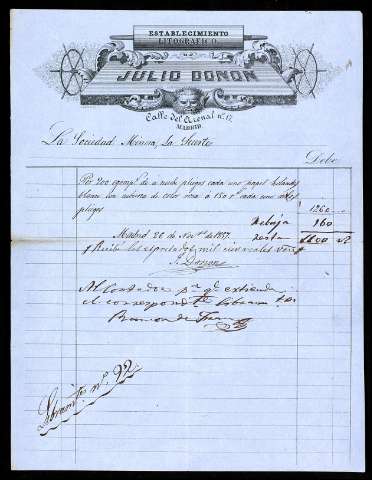 ESTABLECIMIENTO
LITOGRAFICO
JULIO DONON
Calle del Arenal nº 12
MADRID
La Sociedad Minera La Suerte
Debe
Por 200 ejempl. de a nueve pliegos cada uno papel
blanco con cubierta de color rosa á 150 rs cada uno
pliegos 1260
Rebaja 160
Madrid 20 de Nov.e de 1857. resta 1100
Recibí los espresados mil cien reales
J. Donon
Al Contador pa qe extienda
el correspondte libramto
Ramon de
Libramto nº 92